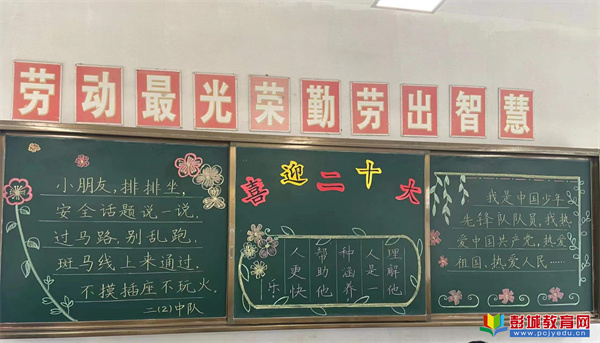 劳动最光荣勤劳出智慧
小朋友，排排坐，
安全话题说一说，
过马路，别乱跑，
斑马线上来通过.
不摸插座不玩火.
二(2)中队
喜迎二十大
理解他
人是一
种涵养,
帮助他
人更快
乐.
我是中国少年
先锋队队员,我热
爱中国共产党,热爱
祖国、热爱人民……
彭城教育网
www.pcjyedu.cn